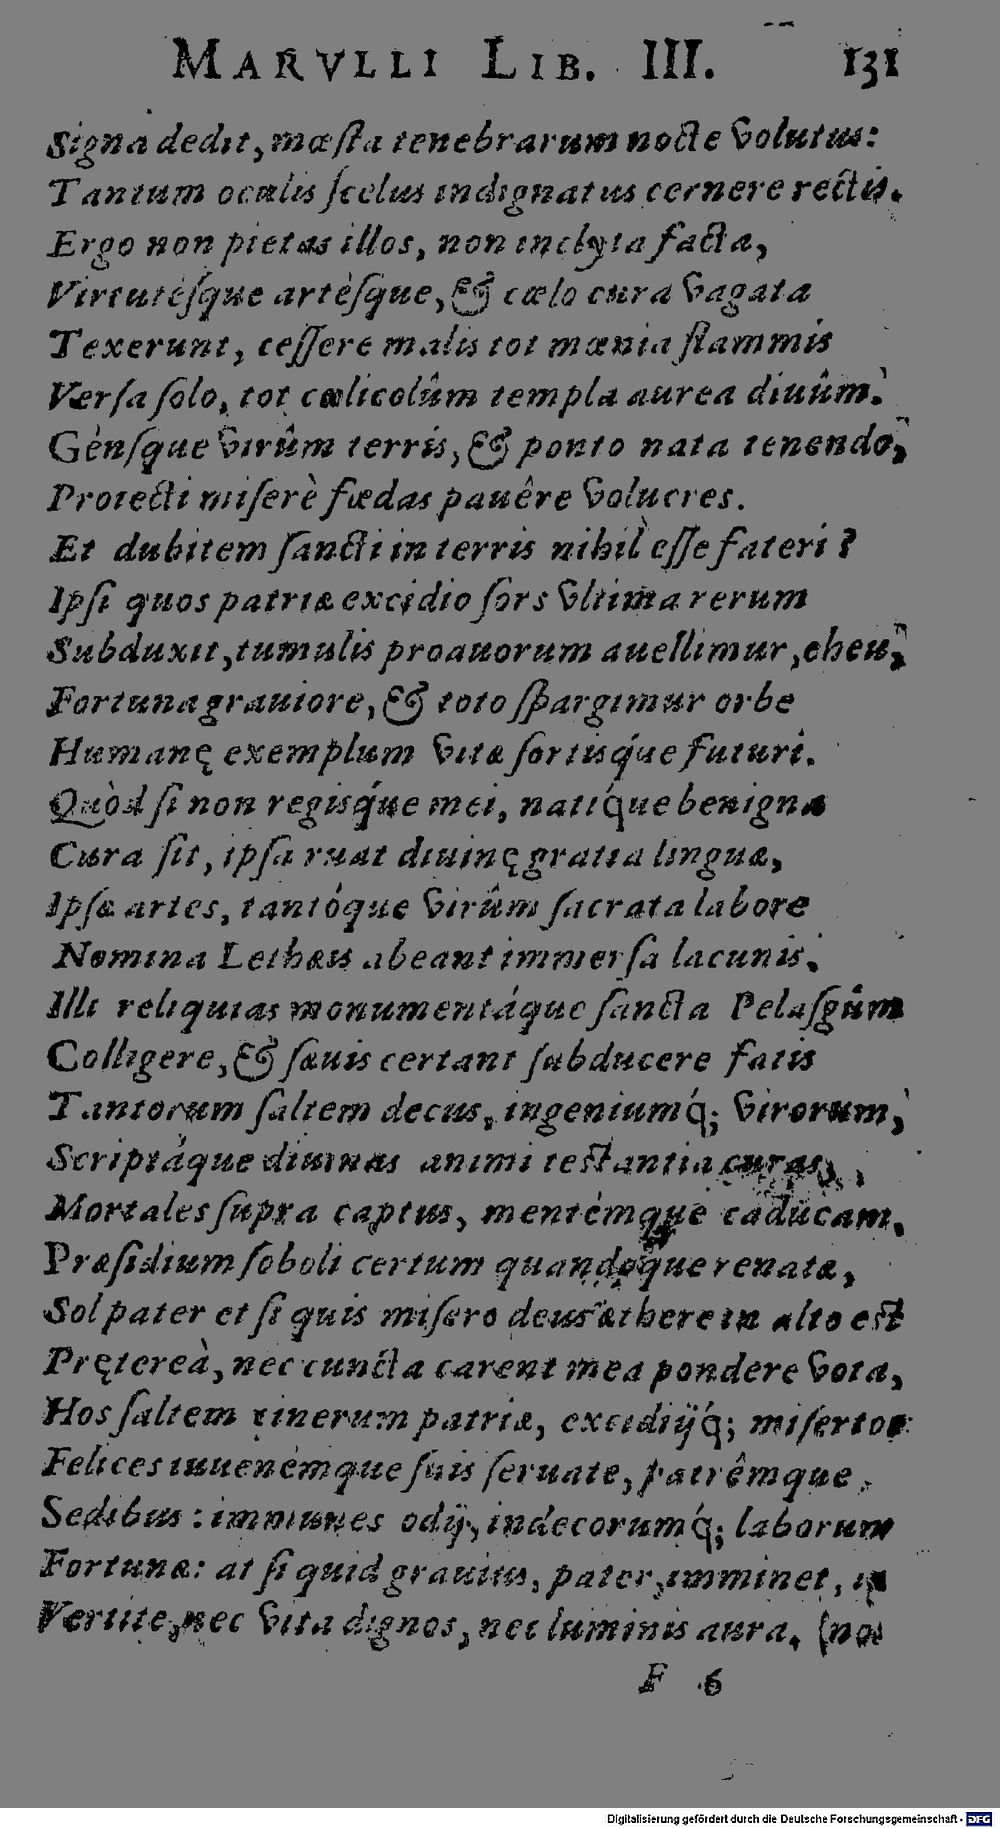 MARVLLI LIB. III. 131
Signa dedit, mœſta tenebrarum nocte volutus:
Tantum oculis ſcelus indignatus cernere rectis.
Ergo non pietas illos, non inclyta facta,
Virtutèſque artèſque, & cœlo cura vagata
Texerunt, ceſſere malis tot mœnia flammis
Verſa ſolo, tot cœlicolûm templa aurea diuûm.
Gènſque virûm terris, & ponto nata tenendo,
Protecti miſerè fœdas pauêre volucres.
Et dubitem ſancti in terris nihil eſſe fateri?
Ipſi quos patriæ excidio ſors vltima rerum
Subduxit, tumulis proauorum auellimur, eheu,
Fortuna grauiore, & toto ſpargimur orbe
Humanę exemplum vitæ ſortisq́ue futuri.
Quòd ſi non regisq́ue mei, natíq́ue benigna
Cura ſit, ipſa ruat diuinę gratia linguæ,
Ipſæ artes, tantóque virûm ſacrata labore
Nomina Lethæis abeant immerſa lacunis.
Illi reliquias monumentáque ſancta Pelaſgûm
Colligere, & ſæuis certant ſubducere fatis
Tantorum ſaltem decus, ingeniumq́; virorum,
Scriptáque diuinas animi teſtantia curas,
Mortales ſupra captus, mentémque caducam.
Præſidium ſoboli certum quandoque renatæ,
Sol pater et ſi quis miſero deus æthere in alto eſt
Pręterea̍, nec cuncta carent mea pondere vota,
Hos ſaltem cinerum patriæ, excidiĳq́; miſertos
Felices iuuenémque ſuis ſeruate, patrêmque
Sedibus: immunes odĳ, indecorumq́; laborum
Fortunæ: at ſi quid grauius, pater, imminet, in
Vertite, nec vita dignos, nec luminis aura. (nos
F 6
Digitalisierung gefördert durch die Deutsche Forschungsgemeinschaft - DFG